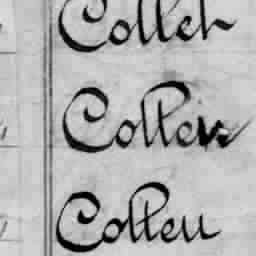 Colleh
Collen
Colleu